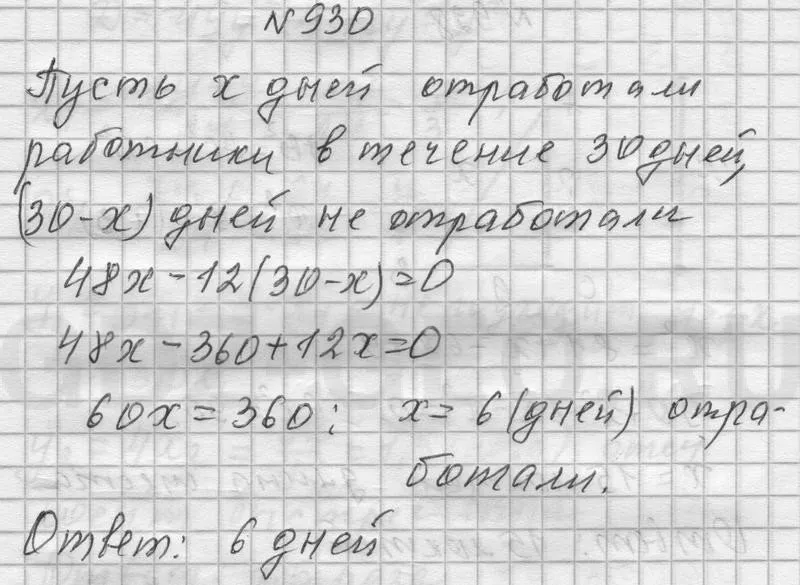 №930
Пусть x дней отработали
работники в течение 30 дней,
(30-x) дней не отработали
48x-12(30-x)=0
48x-360+12x=0
60x=360; x=6 (дней) отра-
ботали.
Ответ: 6 дней